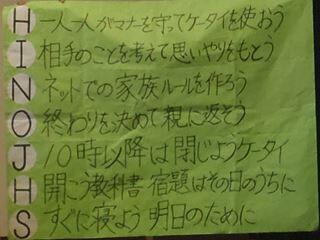 H 一人一人がマナーを守ってケータイを使おう
I 相手のことを考えて思いやりをもとう
N ネットでの家族ルールを作ろう
O 終わりを決めて親に返そう
J 10時以降は閉じようケータイ
H 開こう教科書 宿題はその日のうちに
S すぐに寝よう 明日のために